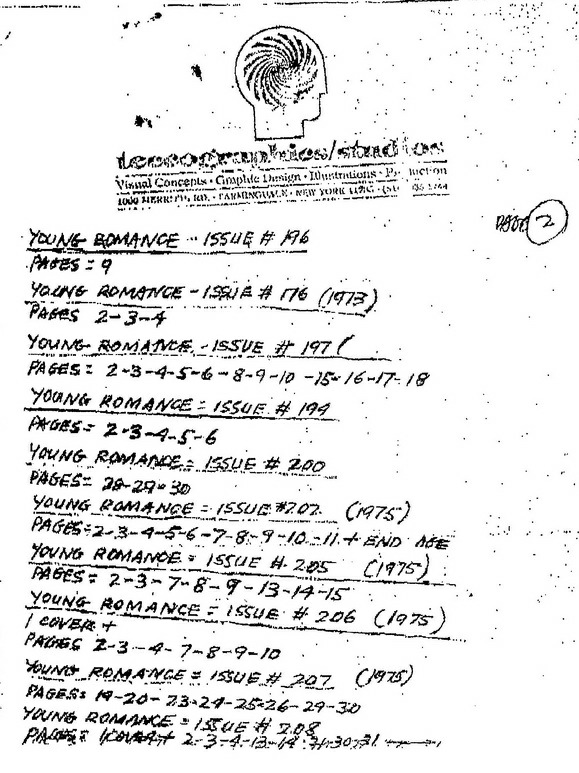 tecsographics/studios
Visual Concepts · Graphic Design · Illustrations ·
1000 MERRITTS RD. · FARMINGDALE · NEW YORK
PAGE 2
YOUNG ROMANCE - ISSUE # 196
PAGES = 9
YOUNG ROMANCE - ISSUE # 176 (1973)
PAGES 2-3-4
YOUNG ROMANCE - ISSUE # 197
PAGES = 2-3-4-5-6-8-9-10-15-16-17-18
YOUNG ROMANCE = ISSUE # 199
PAGES = 2-3-4-5-6
YOUNG ROMANCE = ISSUE # 200
PAGES = 28-29-30
YOUNG ROMANCE = ISSUE #202 (1975)
PAGES = 2-3-4-5-6-7-8-9-10-11 + END AGE
YOUNG ROMANCE = ISSUE # 205 (1975)
PAGES = 2-3-7-8-9-13-14-15
YOUNG ROMANCE = ISSUE # 206 (1975)
1 COVER +
PAGES 2-3-4-7-8-9-10
YOUNG ROMANCE = ISSUE # 207 (1975)
PAGES = 19-20-23-24-25-26-29-30
YOUNG ROMANCE = ISSUE # 208
PAGES = 1 COVER + 2-3-4-13-14-